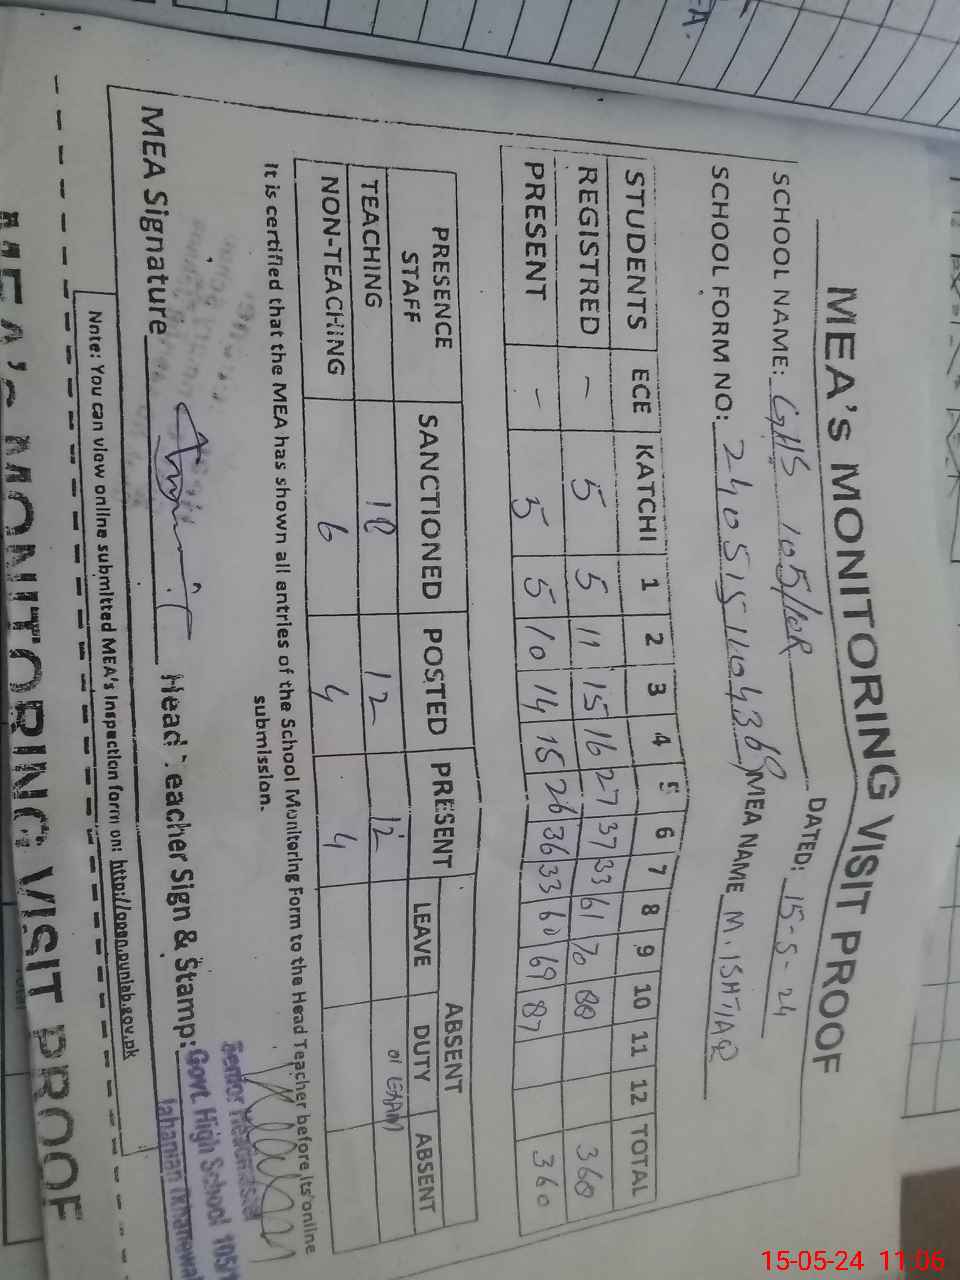 MEA'S MONITORING VISIT PROOF
DATED: 15-5-24
SCHOOL NAME: GHS 105/10R
SCHOOL FORM NO: MEA NAME M. ISHTIAQ
STUDENTS ECE KATCHI 1 2 3 4 5 6 7 8 9 10 11 12 TOTAL
REGISTRED – 5 5 11 15 16 27 37 33 61 70 80 360
PRESENT – 5 5 10 14 15 26 36 33 60 69 87 360
PRESENCE STAFF SANCTIONED POSTED PRESENT ABSENT
LEAVE DUTY ABSENT
TEACHING 18 12 12 01 EXAM)
NON-TEACHING 6 4 4
It is certified that the MEA has shown all entries of the School Monitoring Form to the Head Teacher before its online
submission.
MEA Signature Head Teacher Sign & Stamp:
Senior Headmaster
Govt. High School 105/
Jahanian (Khanewal
Note: You can view online submitted MEA's Inspection form on: http://open.punjab.gov.pk
MEA'S MONITORING VISIT PROOF
15-05-24 11:06